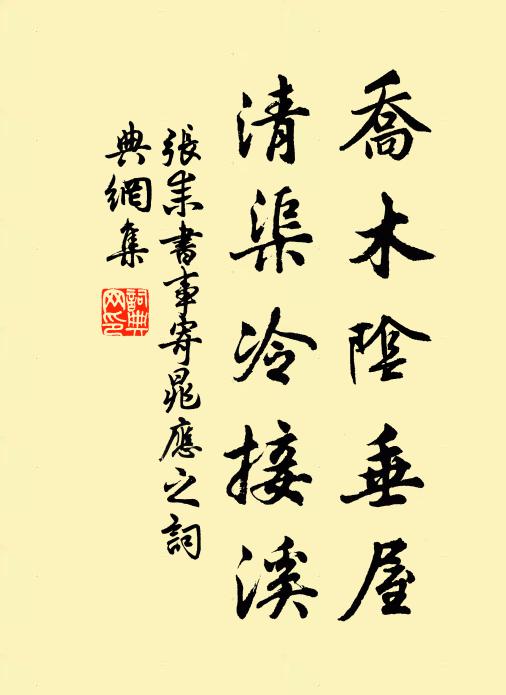 喬木陰垂屋
清渠冷接溪
張耒書事寄晁應之詞
典網集
詞典
网印